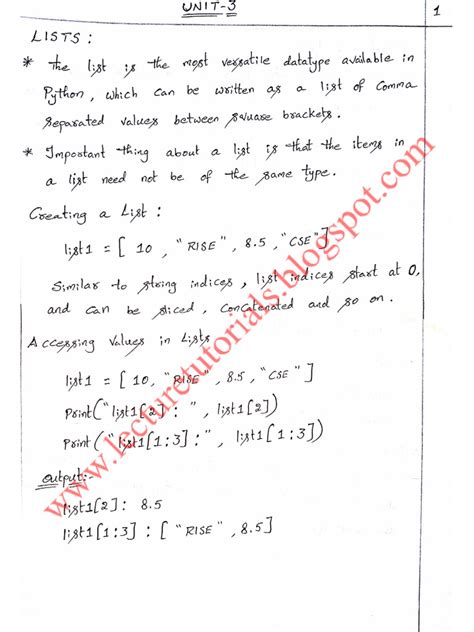 UNIT-3
1
LISTS :
* The list is the most versatile datatype available in
Python, which can be written as a list of Comma
Separated values between square brackets.
* Important thing about a list is that the items in
a list need not be of the same type.
Creating a List :
list1 = [ 10, "RISE", 8.5, "CSE"]
Similar to string indices, list indices start at 0,
and can be sliced, Concatenated and so on.
Accessing Values in Lists
list1 = [ 10, "RISE", 8.5, "CSE"]
Print("list1[2] : ", list1[2])
Print("list1[1:3] : ", list1[1:3])
output:-
list1[2] : 8.5
list1[1:3] : [ "RISE", 8.5]
www.lecturetutorials.blogspot.com